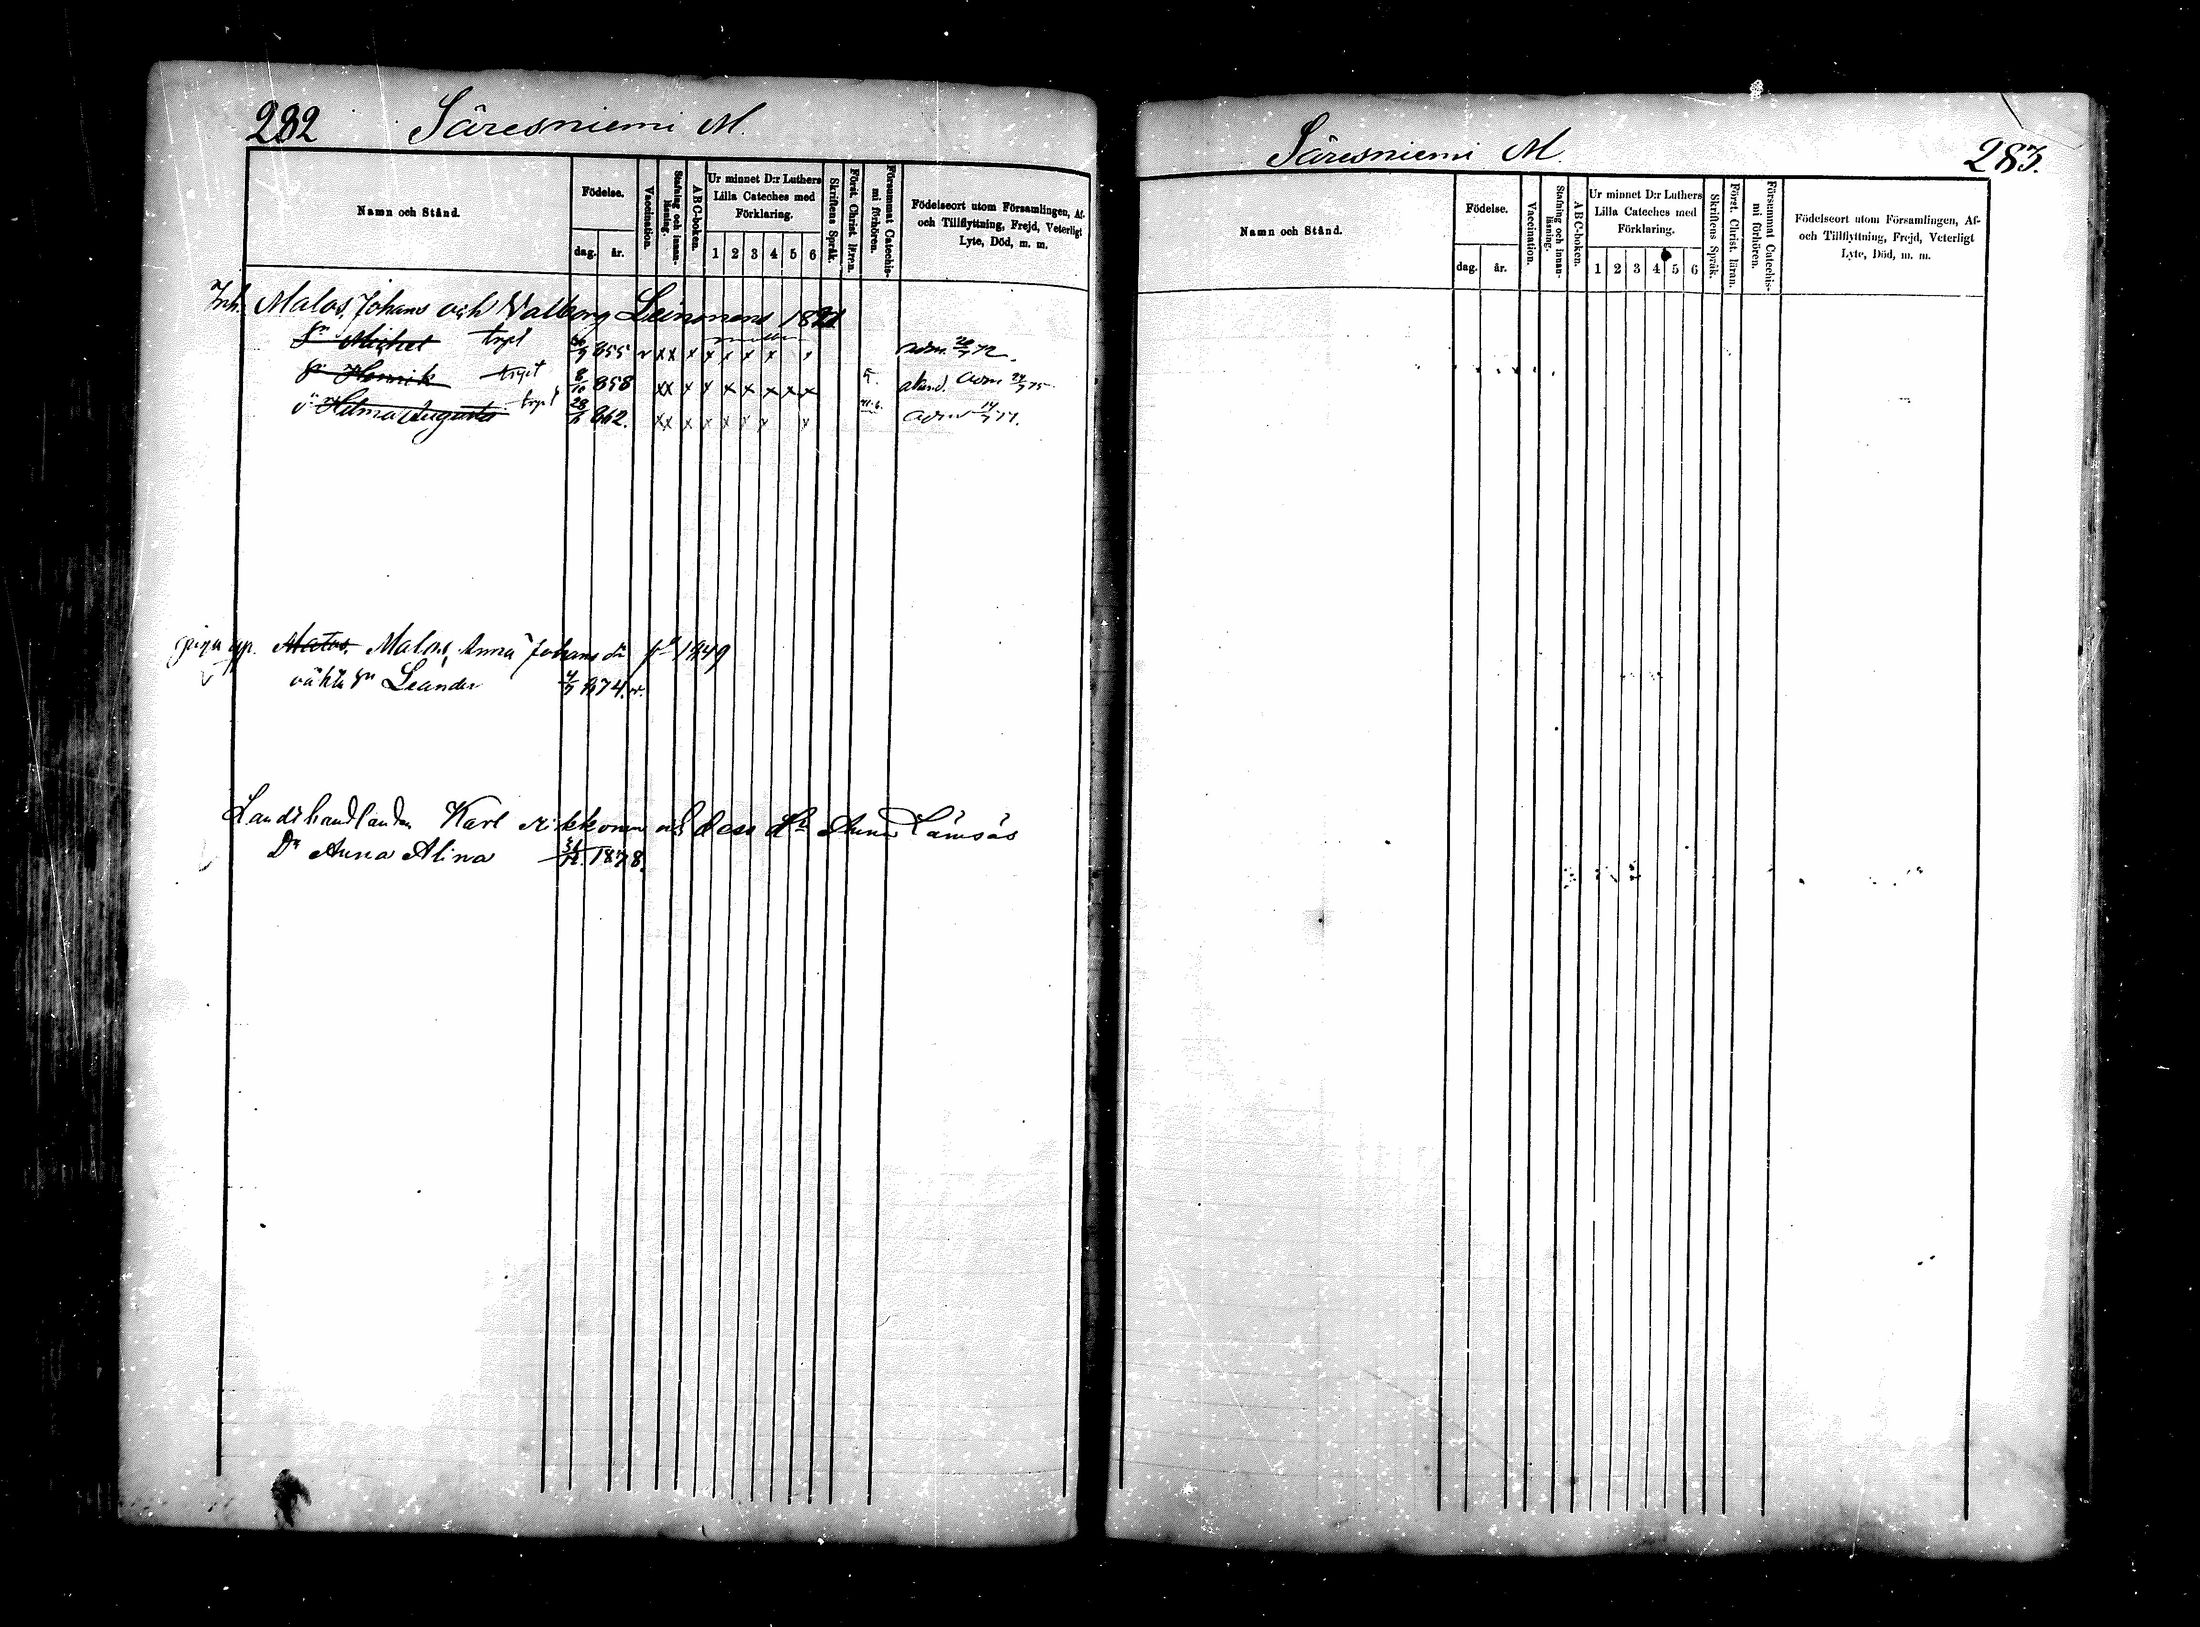 282 Säresniemi M.
Namn och Stånd.
Födelse.
dag. år.
Vaccination.
Stafning och innanläsning.
ABC-boken.
Ur minnet D:r Luthers
Lilla Cateches med
Förklaring.
1 2 3 4 5 6
Skriftens Språk.
Först. Christ. läran.
Försummat Catechismi förhören.
Födelseort utom Församlingen, Af-
och Tillflyttning, Frejd, Veterligt
Lyte, Död, m. m.
Inh. Malos, Johans och Valborg Leinonens
Michel 855 v x x x x x x x x 72.
Henrik 8/10 858 x x x x x x x x x x adm.
Hilma Augusta 28 862. x x x x x x x x
Matos. Malos, Anna Johans dr 1849
oäkta Sn Leander 874. v.
Landthandlanden Karl Mikkonen och dess Anna Lämsäs
Dr Anna Alina 1878.
Säresniemi M. 283.
Namn och Stånd.
Födelse.
dag. år.
Vaccination.
Stafning och innanläsning.
ABC-boken.
Ur minnet D:r Luthers
Lilla Cateches med
Förklaring.
1 2 3 4 5 6
Skriftens Språk.
Först. Christ. läran.
Försummat Catechismi förhören.
Födelseort utom Församlingen, Af-
och Tillflyttning, Frejd, Veterligt
Lyte, Död, m. m.